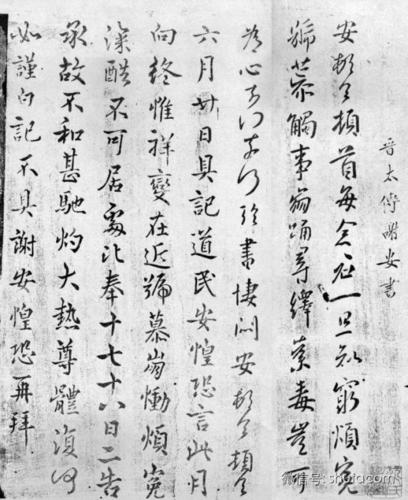 晉太傅謝安書
安頓首頓首每念君一旦知窮煩冤
號慕觸事崩踊尋繹荼毒豈可
為心奈何奈何臨書悽悶安頓首頓首
六月廿日具記道民安惶恐言此月
向終惟祥變在近號慕崩慟煩冤
深酷不可居處比奉十七十八日二告
承故不和甚馳灼大熱尊體復何
如謹白記不具謝安惶恐再拜
微信号: